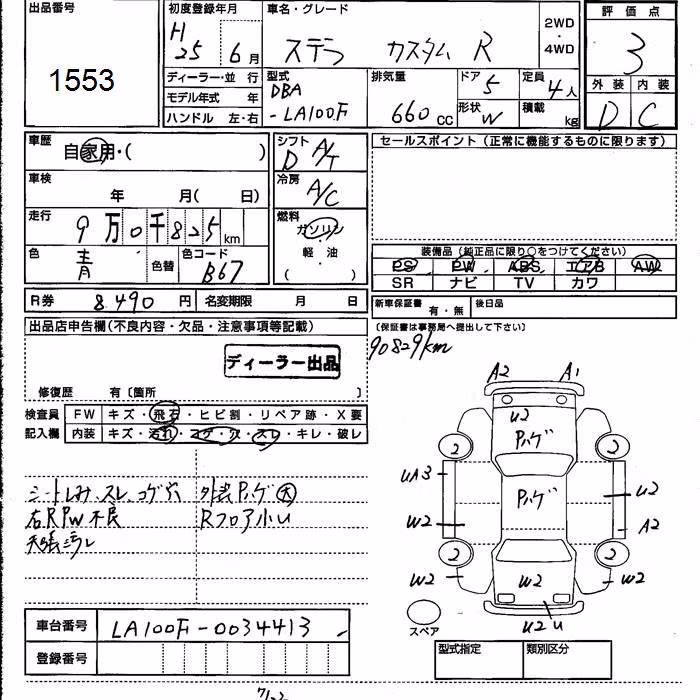 出品番号
1553
初度登録年月
H
25 6月
車名・グレード
ステラ カスタム R
2WD
・
4WD
評価点
3
外装 内装
D C
ディーラー・並行
モデル年式 年
ハンドル 左・右
型式
DBA
-LA100F
排気量
660 CC
ドア
5
形状
W
定員
4人
積載
kg
車歴
自家用・( )
シフト
D A/T
セールスポイント (正常に機能するものに限ります)
車検
年 月( 日)
冷房
A/C
走行
9万0千825km
燃料
ガソリン
・
軽・油
( )
色
青
色替
色コード
B67
装備品 (純正品に限り○をつけてください)
PS PW ABS エアB AW
SR ナビ TV カワ
R券 8,490 円
名変期限 月 日
新車保証書 有・無
後日品
(保証書は事務局へ提出して下さい)
90829km
出品店申告欄(不良内容・欠品・注意事項等記載)
ディーラー出品
修復歴 有〔箇所 〕
検査員 FW キズ・飛石・ヒビ割・リペア跡・X要
記入欄 内装 キズ・汚れ・コゲ・穴・スレ・キレ・破レ
シートしみ、スレ、コゲ穴
右RPW不良
外装Pハゲ大
Rフロア小U
A2 A1
U2
Pハゲ
2 2
UA3
Pハゲ
U2
W2
A2
2 2
W2 W2 W2
U2 U
スペア
車台番号 LA100F-0034413
登録番号
型式指定 類別区分